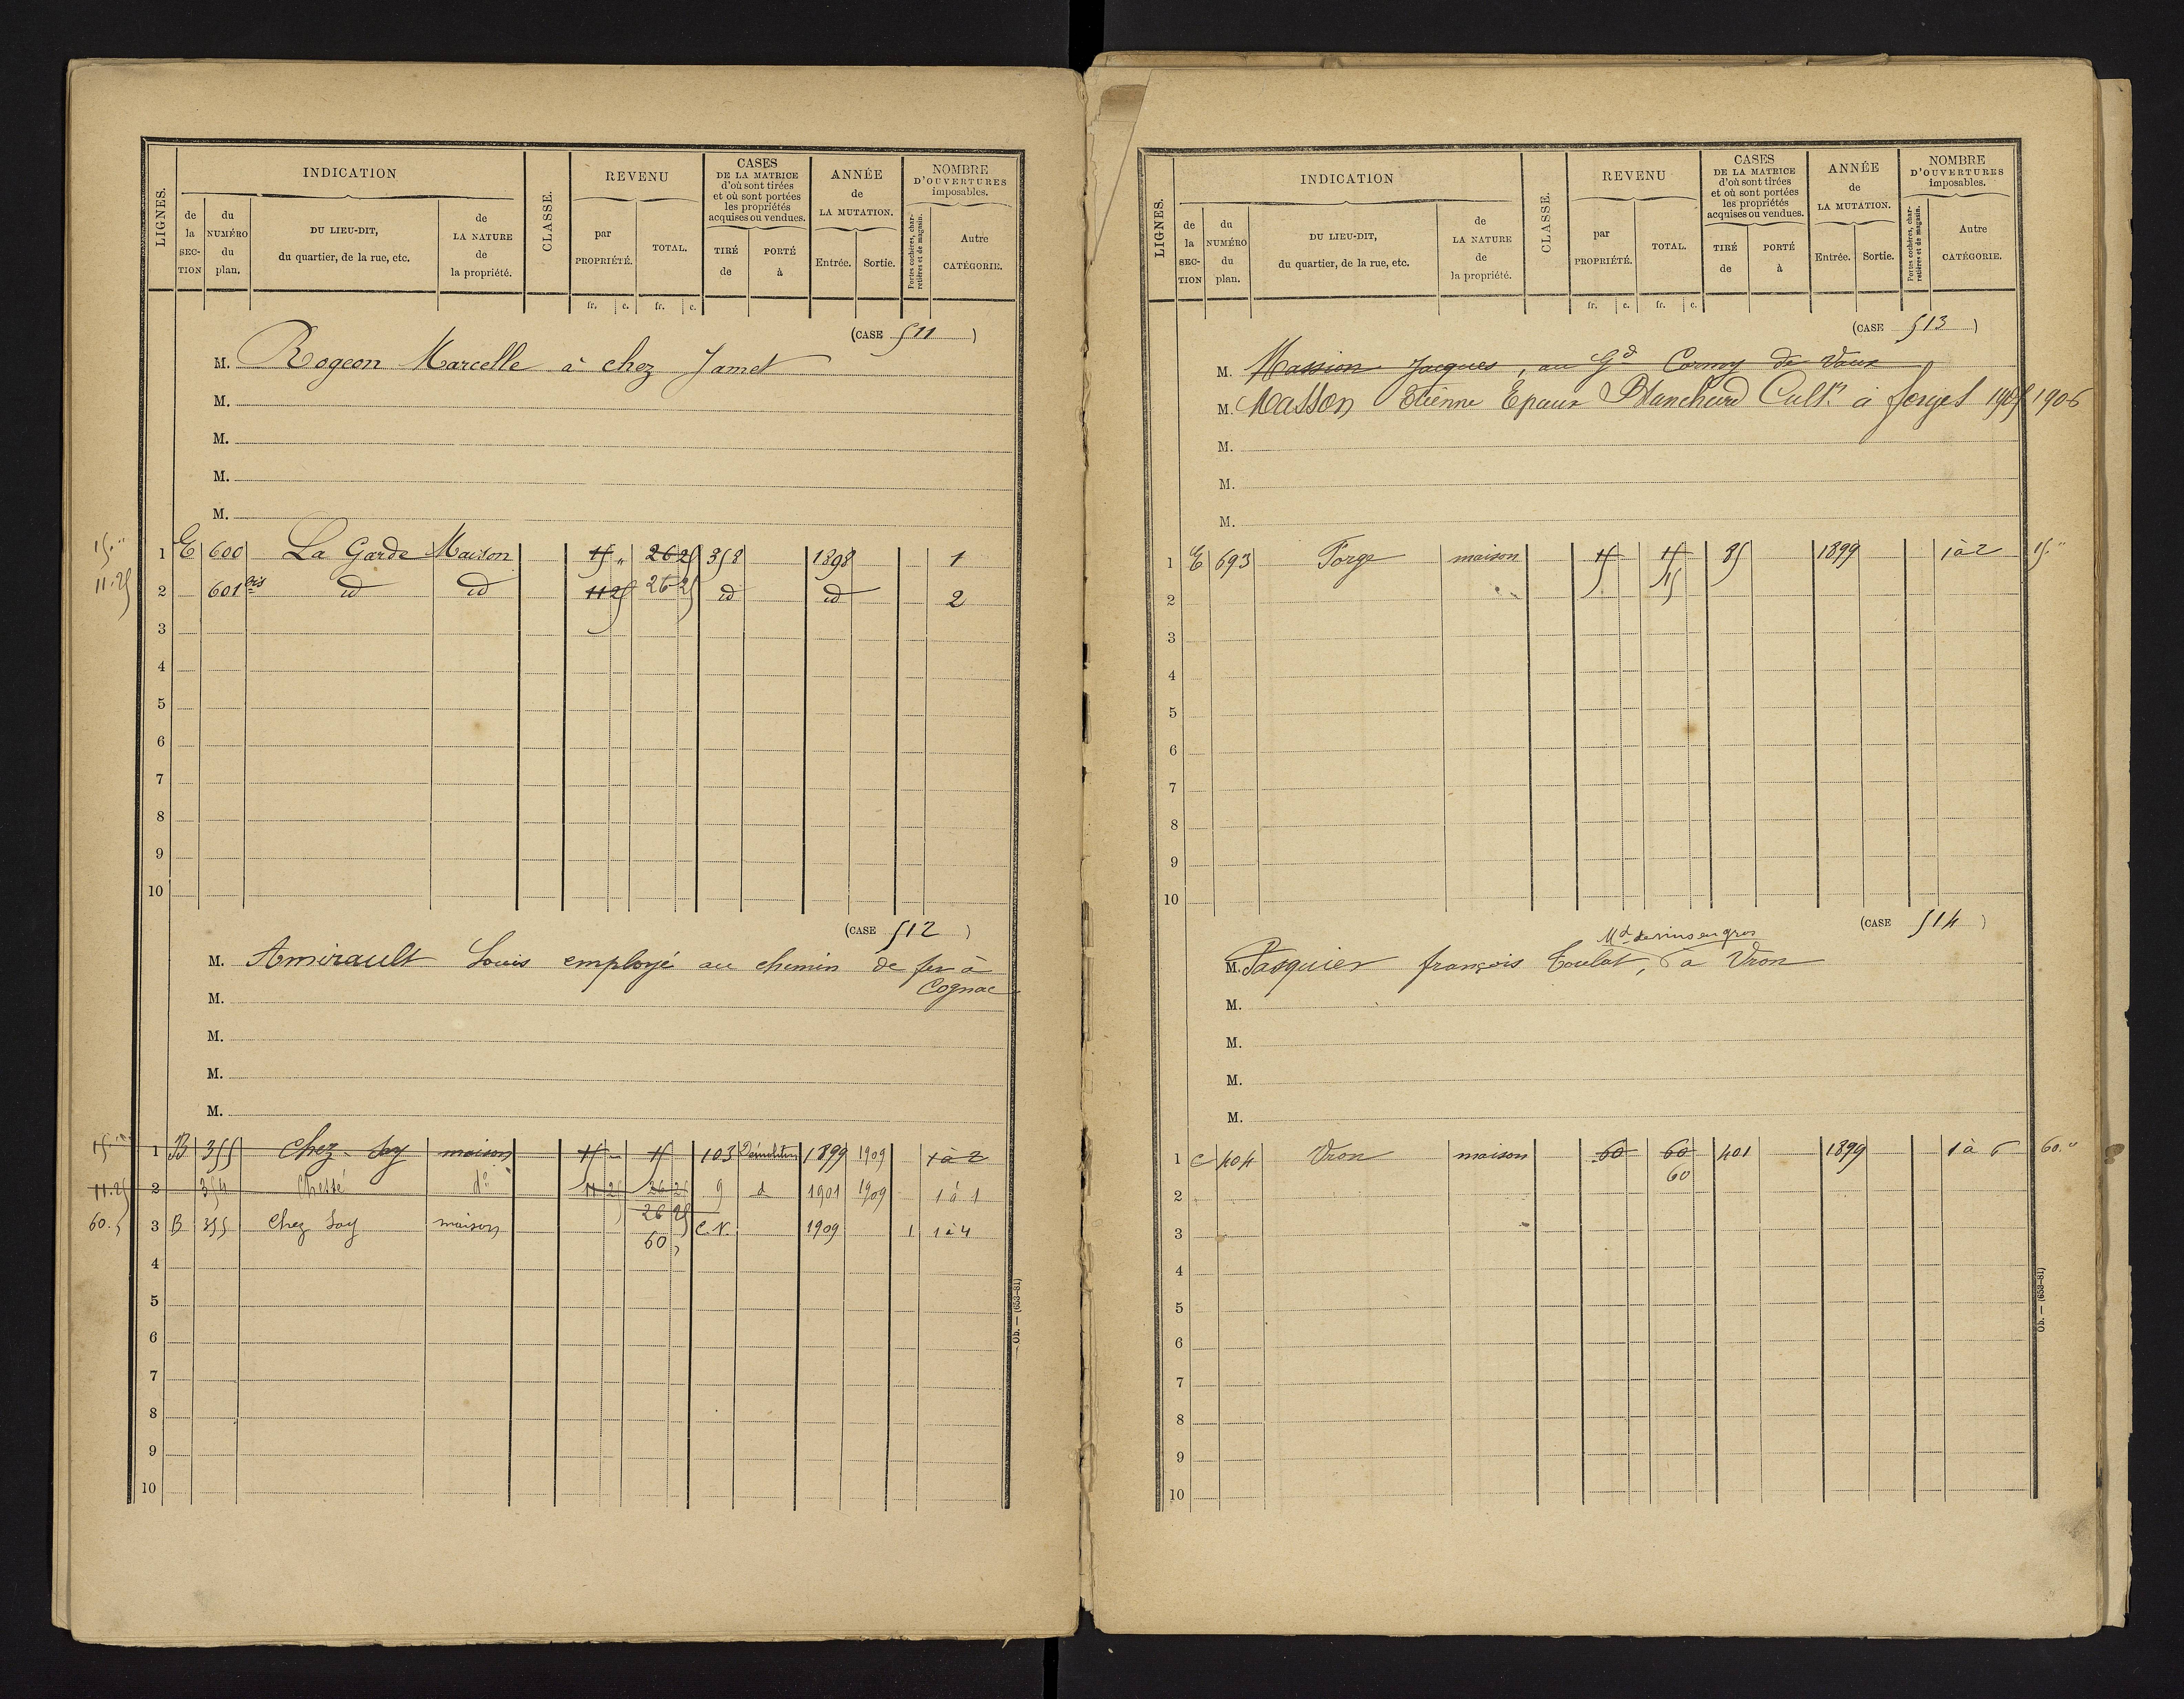 LIGNES. INDICATION CLASSE. REVENU CASES DE LA MATRICE d'où sont tirées et où sont portées les propriétés acquises ou vendues. ANNÉE de LA MUTATION. NOMBRE D'OUVERTURES imposables.
de la SECTION du NUMÉRO du plan. DU LIEU-DIT, du quartier, de la rue, etc. de LA NATURE de la propriété. par PROPRIÉTÉ. TOTAL. TIRÉ de PORTÉ à Entrée. Sortie. Portes cochères, charretières et de magasin. Autre CATÉGORIE.
fr. c. fr. c.
(CASE 511)
M. Rogeon Marcelle à chez Jamet
M.
M.
M.
M.
15." 1 E 600 La Garde Maison 15 " 26 25 358 1898 1
11.25 2 601 bis id id 11 25 26 25 id id 2
3
4
5
6
7
8
9
10
(CASE 512)
M. Amirault Louis employé au chemin de fer à
M. Cognac
M.
M.
M.
15." 1 B 355 Chez Soy maison 15 - 15 103 Démolition 1899 1909 1 à 2
11.25 2 354 Chessé do 11 25 26 25 9 d 1901 1909 1 à 1
26 25
60. 3 B 355 Chez Soy maison 60 C.N. 1909 1 1 à 4
4
5
6
7
8
9
10
Ob. — (653-81)
LIGNES. INDICATION CLASSE. REVENU CASES DE LA MATRICE d'où sont tirées et où sont portées les propriétés acquises ou vendues. ANNÉE de LA MUTATION. NOMBRE D'OUVERTURES imposables.
de la SECTION du NUMÉRO du plan. DU LIEU-DIT, du quartier, de la rue, etc. de LA NATURE de la propriété. par PROPRIÉTÉ. TOTAL. TIRÉ de PORTÉ à Entrée. Sortie. Portes cochères, charretières et de magasin. Autre CATÉGORIE.
fr. c. fr. c.
(CASE 513)
M. Massion Jacques, au Gd Cormoy de Vaux
M. Masson Etienne Epoux Blanchard Cultr à forges 1905 1906
M.
M.
M.
1 E 693 Forge maison 15 15 85 1899 1 à 2 15."
2 15
3
4
5
6
7
8
9
10
(CASE 514)
Md de vins en gros
M. Pasquier françois Coulat, à Vron
M.
M.
M.
M.
1 C 404 Vron maison 60 60 401 1899 1 à 6 60."
2 60
3
4
5
6
7
8
9
10
Ob. — (653-81)